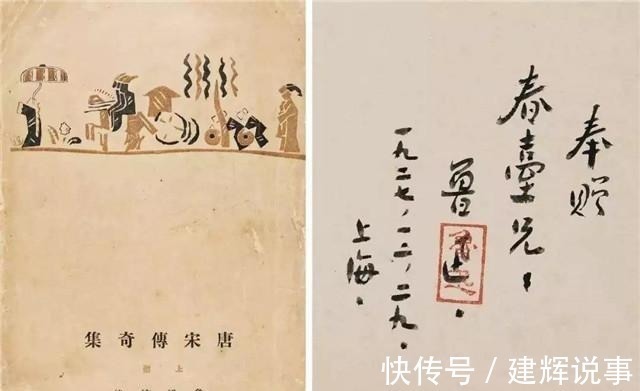 唐宋傳奇集
上冊
奉贈
春臺兄：
魯迅.
一九二七，一二，二九.
上海.
快传号 / 建辉说事